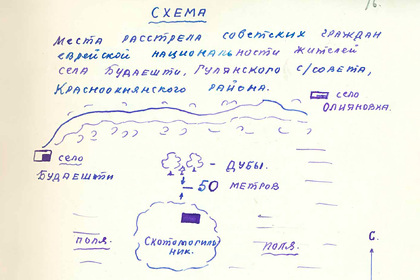 16.
СХЕМА
Места расстрела советских граждан
еврейской национальности жителей
села Будаешти, Гулянского с/совета,
Красноокнянского района.
село
Олияновка.
село
Будаешти
– дубы.
– 50 метров
поля.
Скотомогиль
ник.
поля.
С.